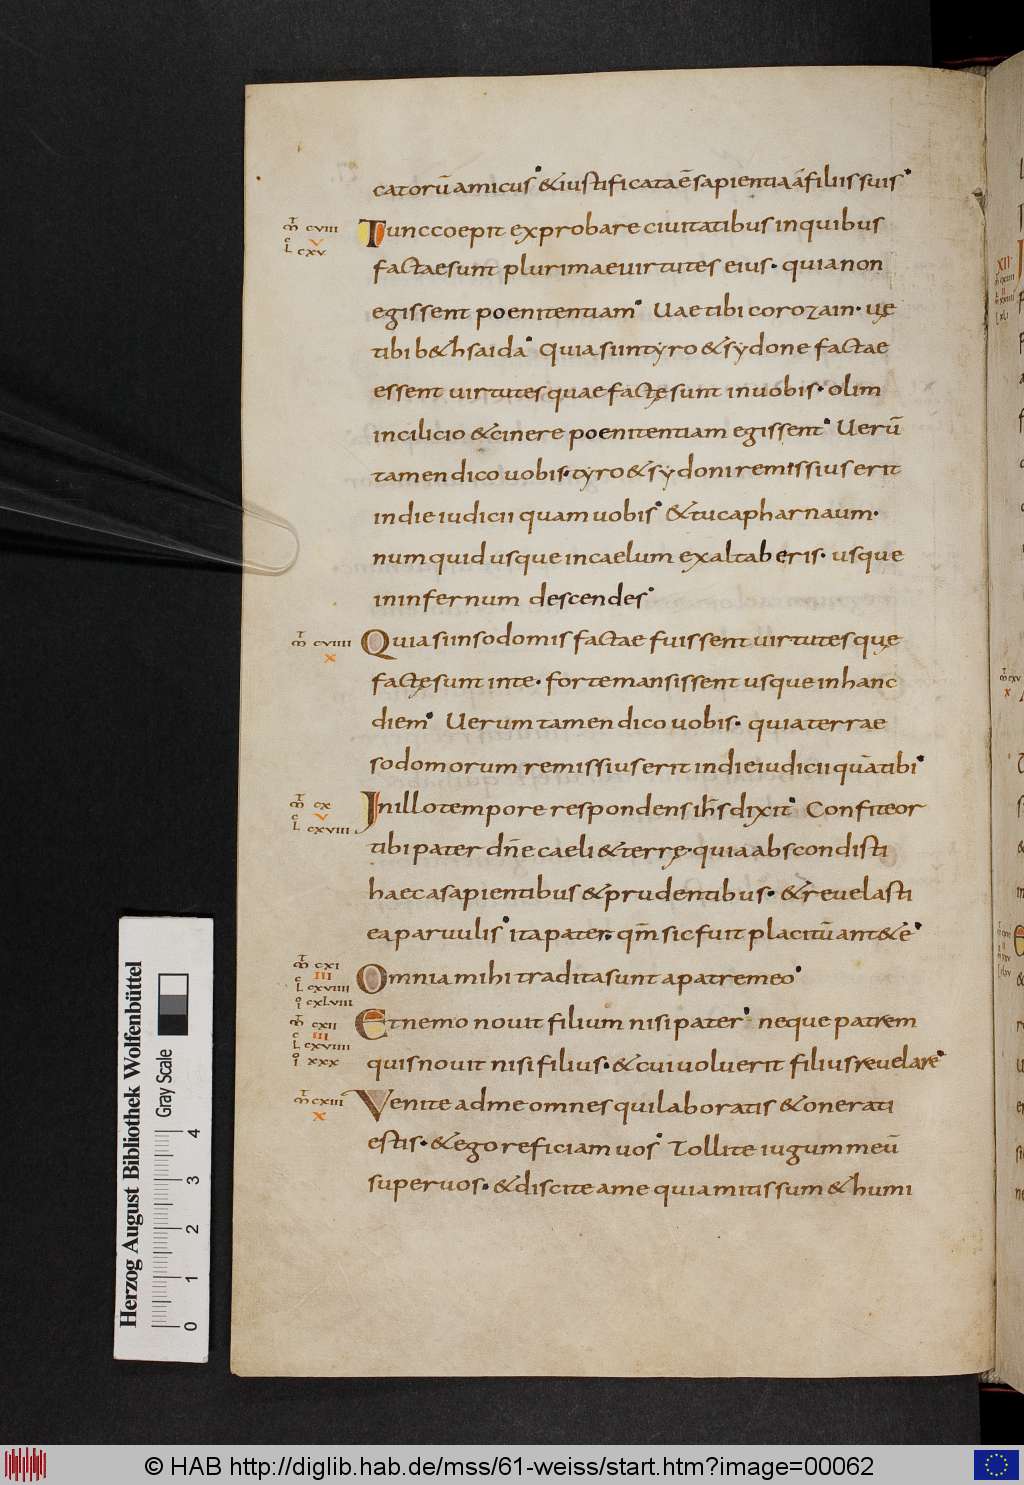 catorū amicus & iustificata ē sapientia a filiis suis
m̄ CVIII
V
L CXV
Tunc coepit exprobare ciuitatibus in quibus
factae sunt plurimae uirtutes eius· quia non
egissent poenitentiam Uae tibi corozain· uę
tibi b&hsaida Quia si in tyro & sydone factae
essent uirtutes quae factę sunt in uobis· olim
in cilicio & cinere poenitentiam egissent Uerū
tamen dico uobis· tyro & sydoni remissius erit
in die iudicii quam uobis & tu capharnaum·
numquid usque in caelum exaltaberis· usque
in infernum descendes
m̄ CVIIII
X
Quia si in sodomis factae fuissent uirtutes quę
factę sunt in te· forte mansissent usque in hanc
diem Uerum tamen dico uobis· quia terrae
sodomorum remissius erit in die iudicii quā tibi
m̄ CX
V
L CXVIII
In illo tempore respondens ih̄s dixit Confiteor
tibi pater dn̄e caeli & terrę· quia abscondisti
haec a sapientibus & prudentibus· & reuelasti
ea paruulis ita pater· qm̄ sic fuit placitū ant& ē
m̄ CXI
III
L CXVIIII
io CXLVIII
Omnia mihi tradita sunt a patre meo
m̄ CXII
III
L CXVIIII
io XXX
Et nemo nouit filium nisi pater neque patrem
quis nouit nisi filius· & cui uoluerit filius reuelare
m̄ CXIII
X
Venite ad me omnes qui laboratis & onerati
estis· & ego reficiam uos Tollite iugum meū
super uos· & discite a me quia mitis sum & humi
Herzog August Bibliothek Wolfenbüttel
Gray Scale
0 1 2 3 4
© HAB http://diglib.hab.de/mss/61-weiss/start.htm?image=00062